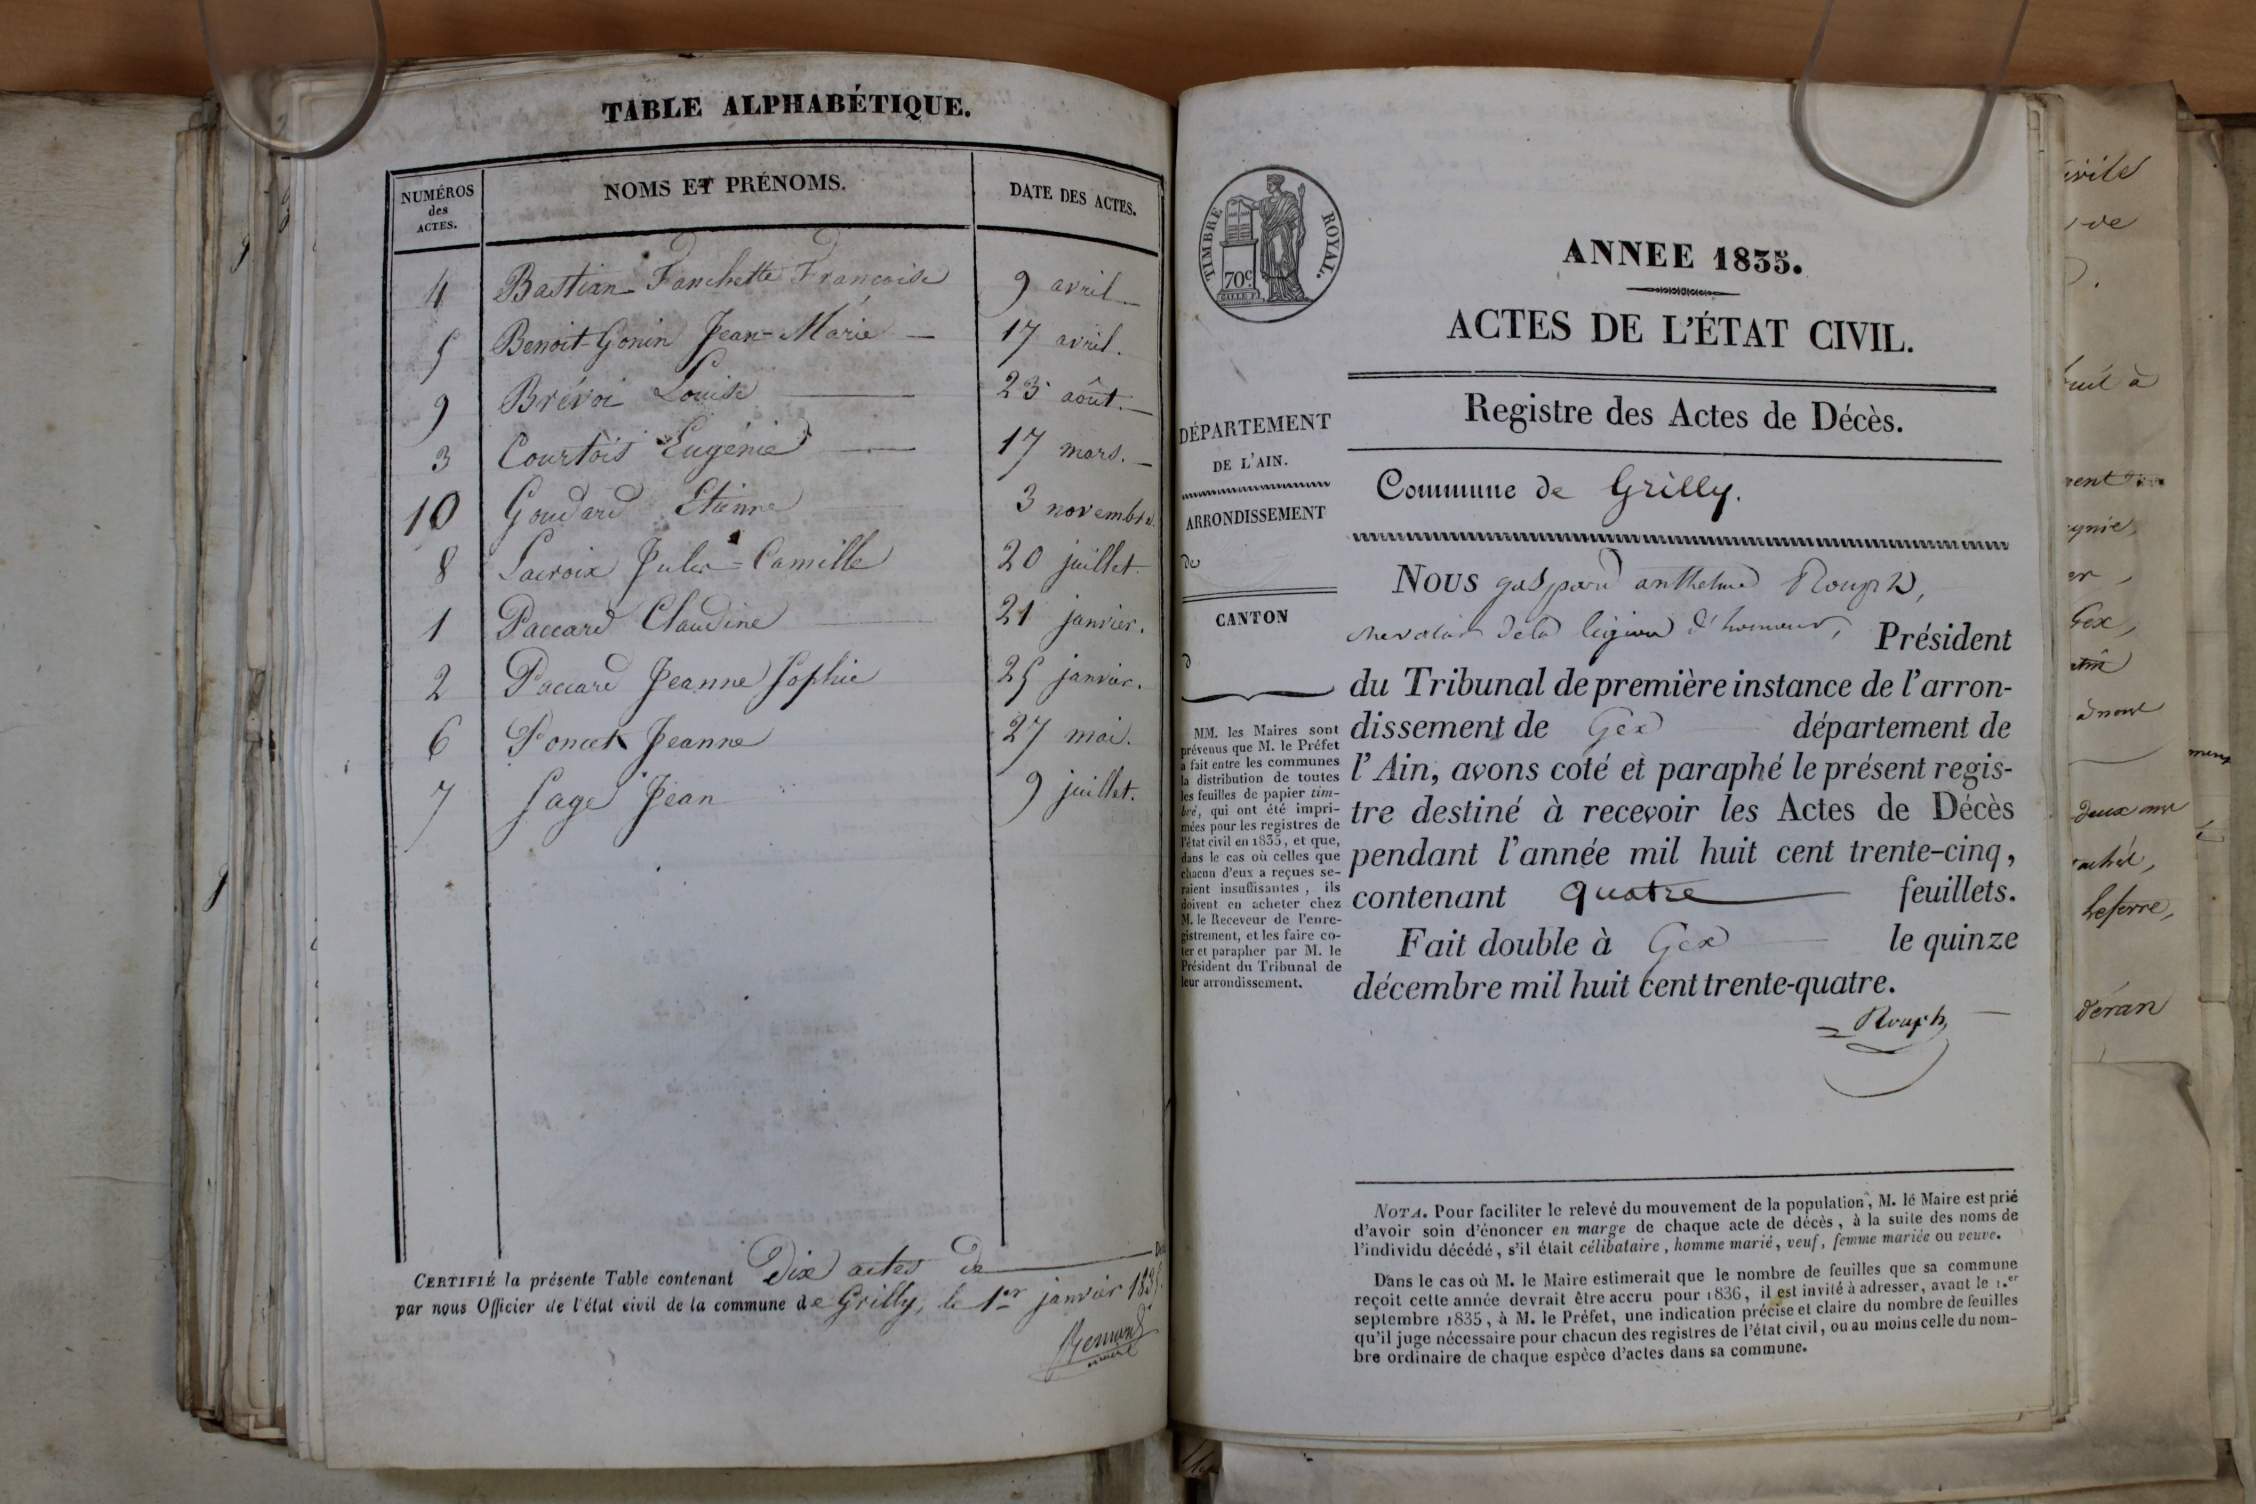 TABLE ALPHABÉTIQUE.
NUMÉROS des ACTES. NOMS ET PRÉNOMS. DATE DES ACTES.
4 Bastian Fanchette Francoise 9 avril
5 Benoit-Gonin Jean-Marie 17 avril.
9 Brévoi Louise 23 août.
3 Courtois Eugénie 17 mars.
10 Goudard Etienne 3 novembre.
8 Lacroix Jules-Camille 20 juillet.
1 Paccard Claudine 21 janvier.
2 Paccard Jeanne Sophie 25 janvier.
6 Poncet Jeanne 27 mai.
7 Sage Jean 9 juillet.
CERTIFIÉ la présente Table contenant Dix actes de
par nous Officier de l'état civil de la commune de Grilly, le 1er janvier
TIMBRE ROYAL.
70c
ANNEE 1835.
ACTES DE L'ÉTAT CIVIL.
Registre des Actes de Décès.
Commune de Grilly.
DÉPARTEMENT
DE L'AIN.
ARRONDISSEMENT
de
CANTON
d
MM. les Maires sont
prévenus que M. le Préfet
a fait entre les communes
la distribution de toutes
les feuilles de papier tim-
bré, qui ont été impri-
mées pour les registres de
l'état civil en 1835, et que,
dans le cas où celles que
chacun d'eux a reçues se-
raient insuffisantes, ils
doivent en acheter chez
M. le Receveur de l'enre-
gistrement, et les faire co-
ter et parapher par M. le
Président du Tribunal de
leur arrondissement.
NOUS gaspard anthelme Rouph,
chevalier de la légion d'honneur, Président
du Tribunal de première instance de l'arron-
dissement de Gex département de
l'Ain, avons coté et paraphé le présent regis-
tre destiné à recevoir les Actes de Décès
pendant l'année mil huit cent trente-cinq,
contenant quatre feuillets.
Fait double à Gex le quinze
décembre mil huit cent trente-quatre.
Rouph
NOTA. Pour faciliter le relevé du mouvement de la population, M. lé Maire est prié
d'avoir soin d'énoncer en marge de chaque acte de décès, à la suite des noms de
l'individu décédé, s'il était célibataire, homme marié, veuf, femme mariée ou veuve.
Dans le cas où M. le Maire estimerait que le nombre de feuilles que sa commune
reçoit cette année devrait être accru pour 1836, il est invité à adresser, avant le 1.er
septembre 1835, à M. le Préfet, une indication précise et claire du nombre de feuilles
qu'il juge nécessaire pour chacun des registres de l'état civil, ou au moins celle du nom-
bre ordinaire de chaque espèce d'actes dans sa commune.